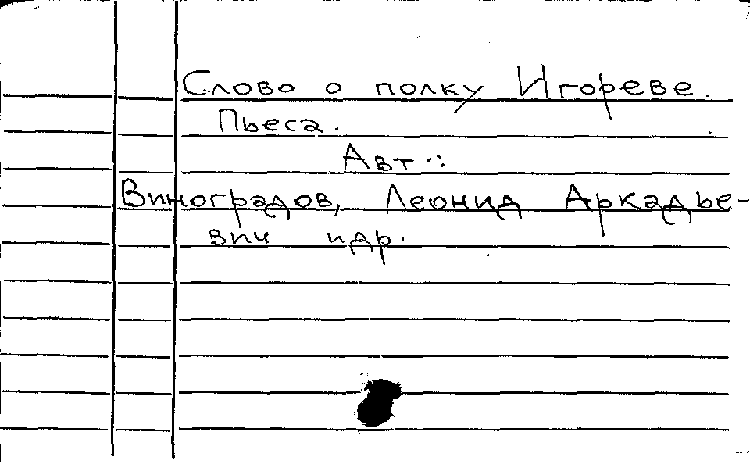 Слово о полку Игореве.
Пьеса.
Авт.:
Виноградов, Леонид Аркадье-
вич и др.